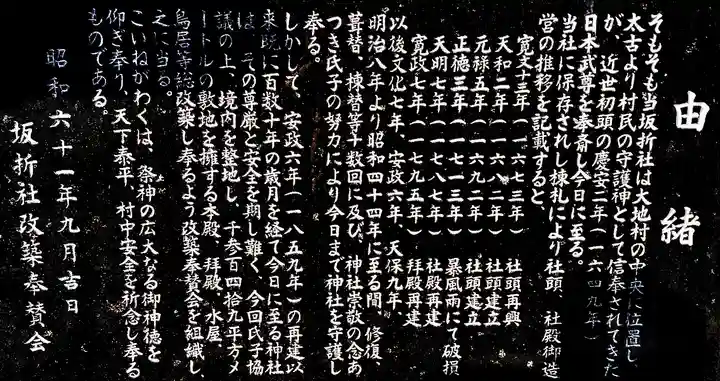 由緒
そもそも当坂折社は大地村の中央に位置し、
太古より村民の守護神として信奉されてきた
が、近世初頭の慶安二年(一六四九年)
日本武尊を奉斎し今日に至る。
当社に保存されし棟札により社頭、社殿御造
営の推移を記載すると、
寛文十三年(一六七三年) 社頭再興
天和二年(一六八二年) 社頭建立
元禄五年(一六九二年) 社頭建立
正徳三年(一七一三年) 暴風雨にて破損
天明七年(一七八七年) 社殿再建
寛政七年(一七九五年) 拝殿再建
以後文化七年、安政六年、天保九年、
明治八年より昭和四十四年に至る間、修復、
葺替、棟替等十数回に及び、神社崇敬の念あ
つき氏子の努力により今日まで神社を守護し
奉る。
しかして、安政六年(一八五九年)の再建以
来既に百数十年の歳月を経て今日に至る神社
は、その尊厳と安全を期し難く、今回氏子協
議の上、境内を整地し、千参百四拾九平方メ
ートルの敷地を擁する本殿、拝殿、水屋、
鳥居等総改築し奉るよう改築奉賛会を組織し、
之に当る。
こいねがわくは、祭神の広大なる御神徳を
仰ぎ奉り、天下泰平、村中安全を祈念し奉る
ものである。
昭和六十一年九月吉日
坂折社改築奉賛会